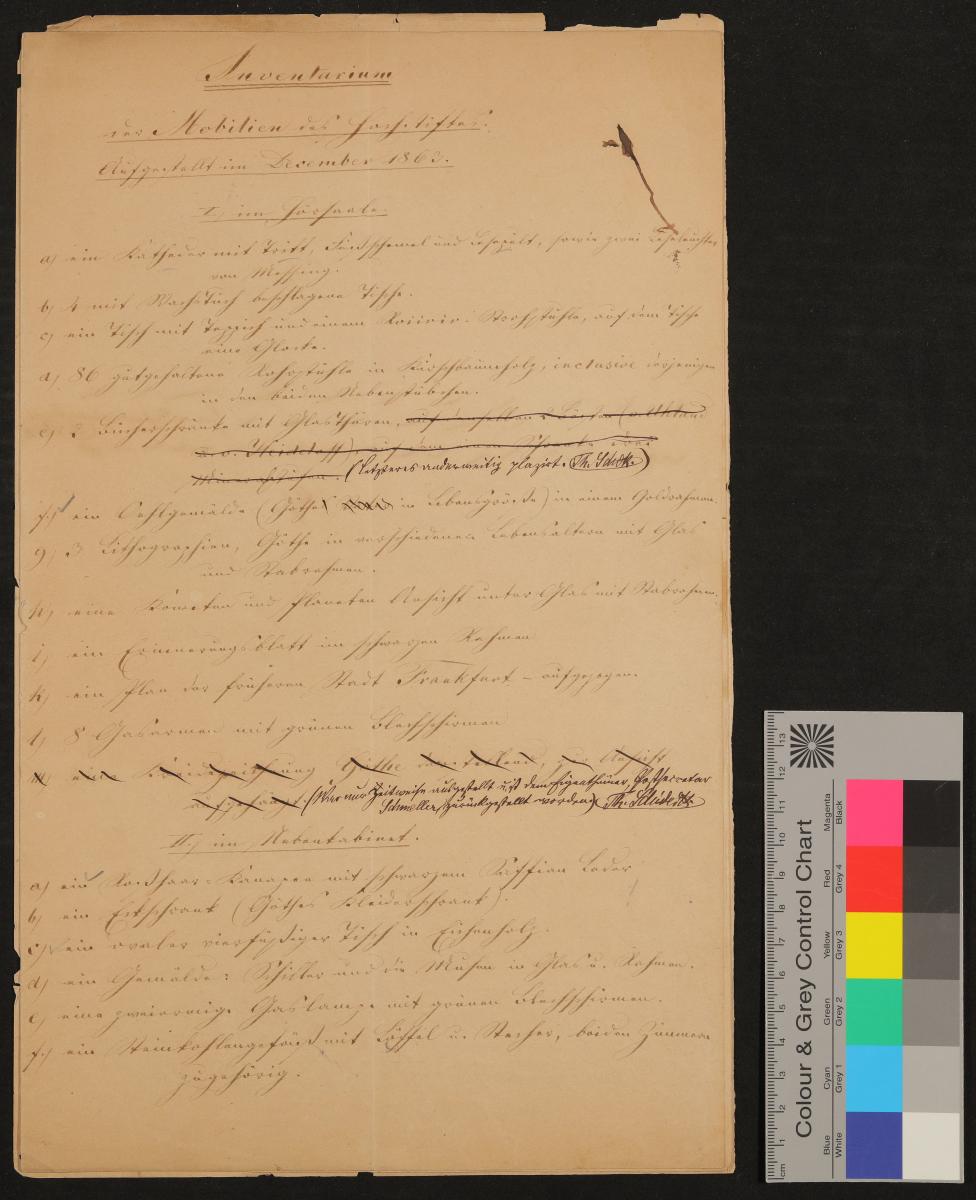 Inventarium
der Mobilien des Hochstiftes.
Aufgestellt im December 1863.
I, im Hörsaale.
a) ein Katheder mit Tritt, Fußschemel und Lesepult, sowie zwei Leseleuchter
von Messing.
b, 4 mit Wachstuch beschlagene Tische.
c, ein Tisch mit Teppich und einem Rohrstuhle, auf dem Tische
eine Glocke.
d, 86 gutgehaltene Rohrstühle in Kirschbaumholz, inclusive derjenigen
in den beiden Nebenstübchen.
e, 2 Bücherschränke mit Glasthüren, auf denselben 2 Büsten
auf dem einen Schranke
(letzteres anderweitig plazirt. Th. Schck.)
f.) ein Oehlgemälde (Göthe in Lebensgröße) in einem Goldrahmen.
g, 3 Lithographien, Göthe in verschiedenen Lebensaltern mit Glas
und Stabrahmen.
h, eine Kometen und Planeten Ansicht unter Glas mit Stabrahm.
i, ein Erinnerungsblatt im schwarzen Rahmen
k, ein Plan der früheren Stadt Frankfurt – aufgezogen.
l, 8 Gasarmen mit grünen Blechschirmen
m, eine Kreidezeichnung Göthe darstellend, zur Ansicht
aufgehängt. (War nur Zeitweise ausgestellt u. ist dem Eigenthümer, Postsecretär
Schmöller, zurückgestellt worden) Th. Schideck.
II.) im Nebenkabinet.
a) ein Roßhaar-Kanapee mit schwarzem Saffian Leder
b, ein Eckschrank (Göthes Kleiderschrank).
c, ein ovaler vierfüßiger Tisch in Eichenholz.
d, ein Gemälde: Schiller und die Musen in Glas u. Rahmen.
e, eine zweiarmige Gaslampe mit grünen Blechschirmen.
f.) ein Steinkohlengefäß mit Löffel u. Stecher, beiden Zimmern
zugehörig.
Colour & Grey Control Chart
Blue Cyan Green Yellow Red Magenta
White Grey 1 Grey 2 Grey 3 Grey 4 Black
cm 1 2 3 4 5 6 7 8 9 10 11 12 13